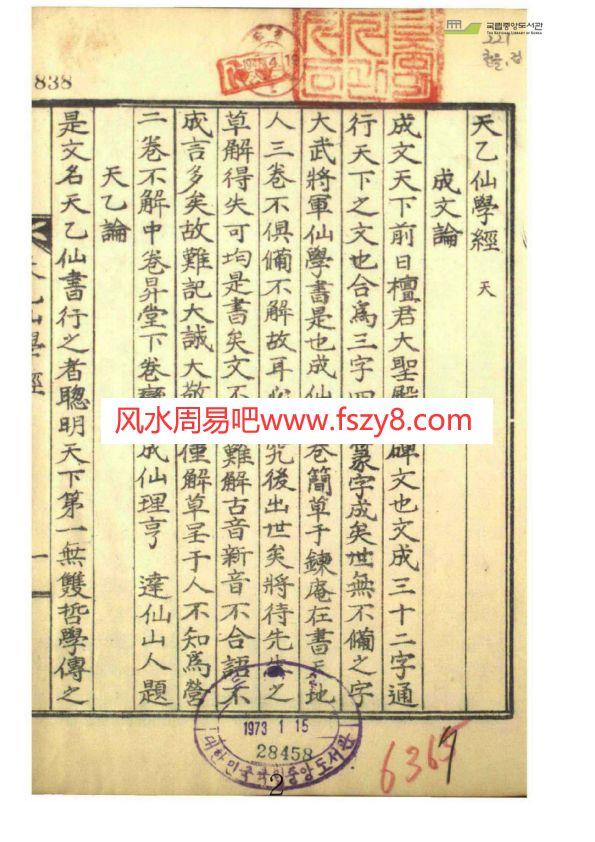 국립중앙도서관
THE NATIONAL LIBRARY OF KOREA
221
838
天乙仙學經 天
成文論
成文天下前日檀君大聖殿碑文也文成三十二字通
行天下之文也合爲三字四篆字成矣世無不備之字
大武將軍仙學書是也成仙卷簡草于鍊庵在書天地
人三卷不俱備不解故耳必究後出世矣將待先生之
草解得失可均是書矣文不難解古音新音不合語不
成言多矣故難記大誠大敬僅解草呈于人不知爲營
二卷不解中卷昇堂下卷成仙理亨 達仙山人題
天乙論
是文名天乙仙書行之者聰明天下第一無雙哲學傳之
一
风水周易吧www.fszy8.com
1973 1 15
28458
대한민국국립중앙도서관
2